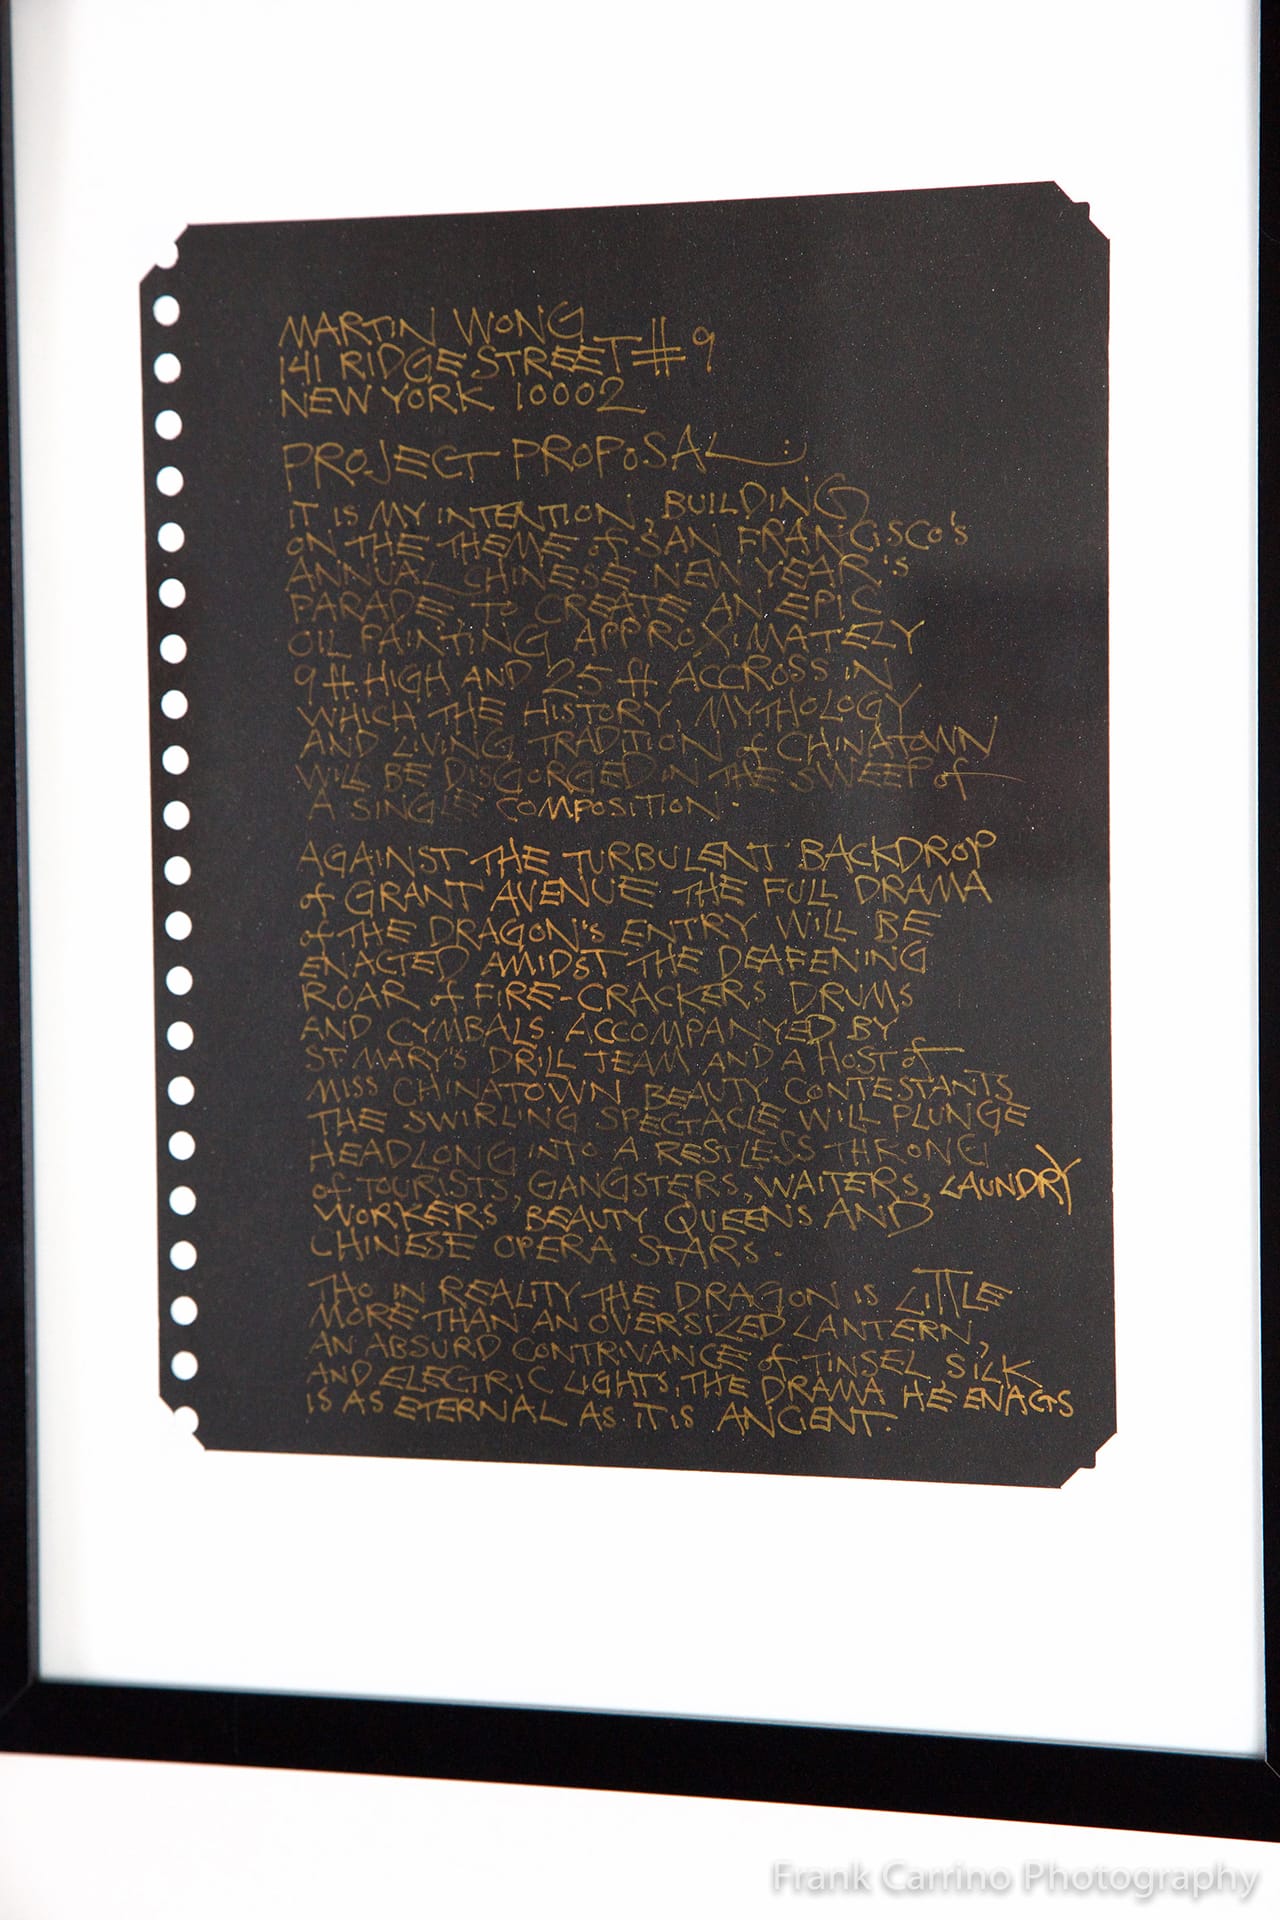 MARTIN WONG
141 RIDGE STREET #9
NEW YORK 10002
PROJECT PROPOSAL:
IT IS MY INTENTION, BUILDING
ON THE THEME of SAN FRANCISCO'S
ANNUAL CHINESE NEW YEAR'S
PARADE TO CREATE AN EPIC
OIL PAINTING APPROXIMATELY
9 ft. HIGH AND 25 ft ACCROSS IN
WHICH THE HISTORY, MYTHOLOGY
AND LIVING TRADITION of CHINATOWN
WILL BE DISGORGED IN THE SWEEP of
A SINGLE COMPOSITION.
AGAINST THE TURBULENT BACKDROP
of GRANT AVENUE THE FULL DRAMA
of THE DRAGON'S ENTRY WILL BE
ENACTED AMIDST THE DEAFENING
ROAR of FIRE-CRACKERS DRUMS
AND CYMBALS. ACCOMPANYED BY
ST. MARY'S DRILL TEAM AND A HOST of
MISS CHINATOWN BEAUTY CONTESTANTS
THE SWIRLING SPECTACLE WILL PLUNGE
HEADLONG INTO A RESTLESS THRONG
of TOURISTS, GANGSTERS, WAITERS, LAUNDRY
WORKERS BEAUTY QUEENS AND
CHINESE OPERA STARS.
THO IN REALITY THE DRAGON IS LITTLE
MORE THAN AN OVERSIZED LANTERN,
AN ABSURD CONTRIVANCE of TINSEL SILK
AND ELECTRIC LIGHTS, THE DRAMA HE ENACTS
IS AS ETERNAL AS IT IS ANCIENT.
Frank Carrino Photography